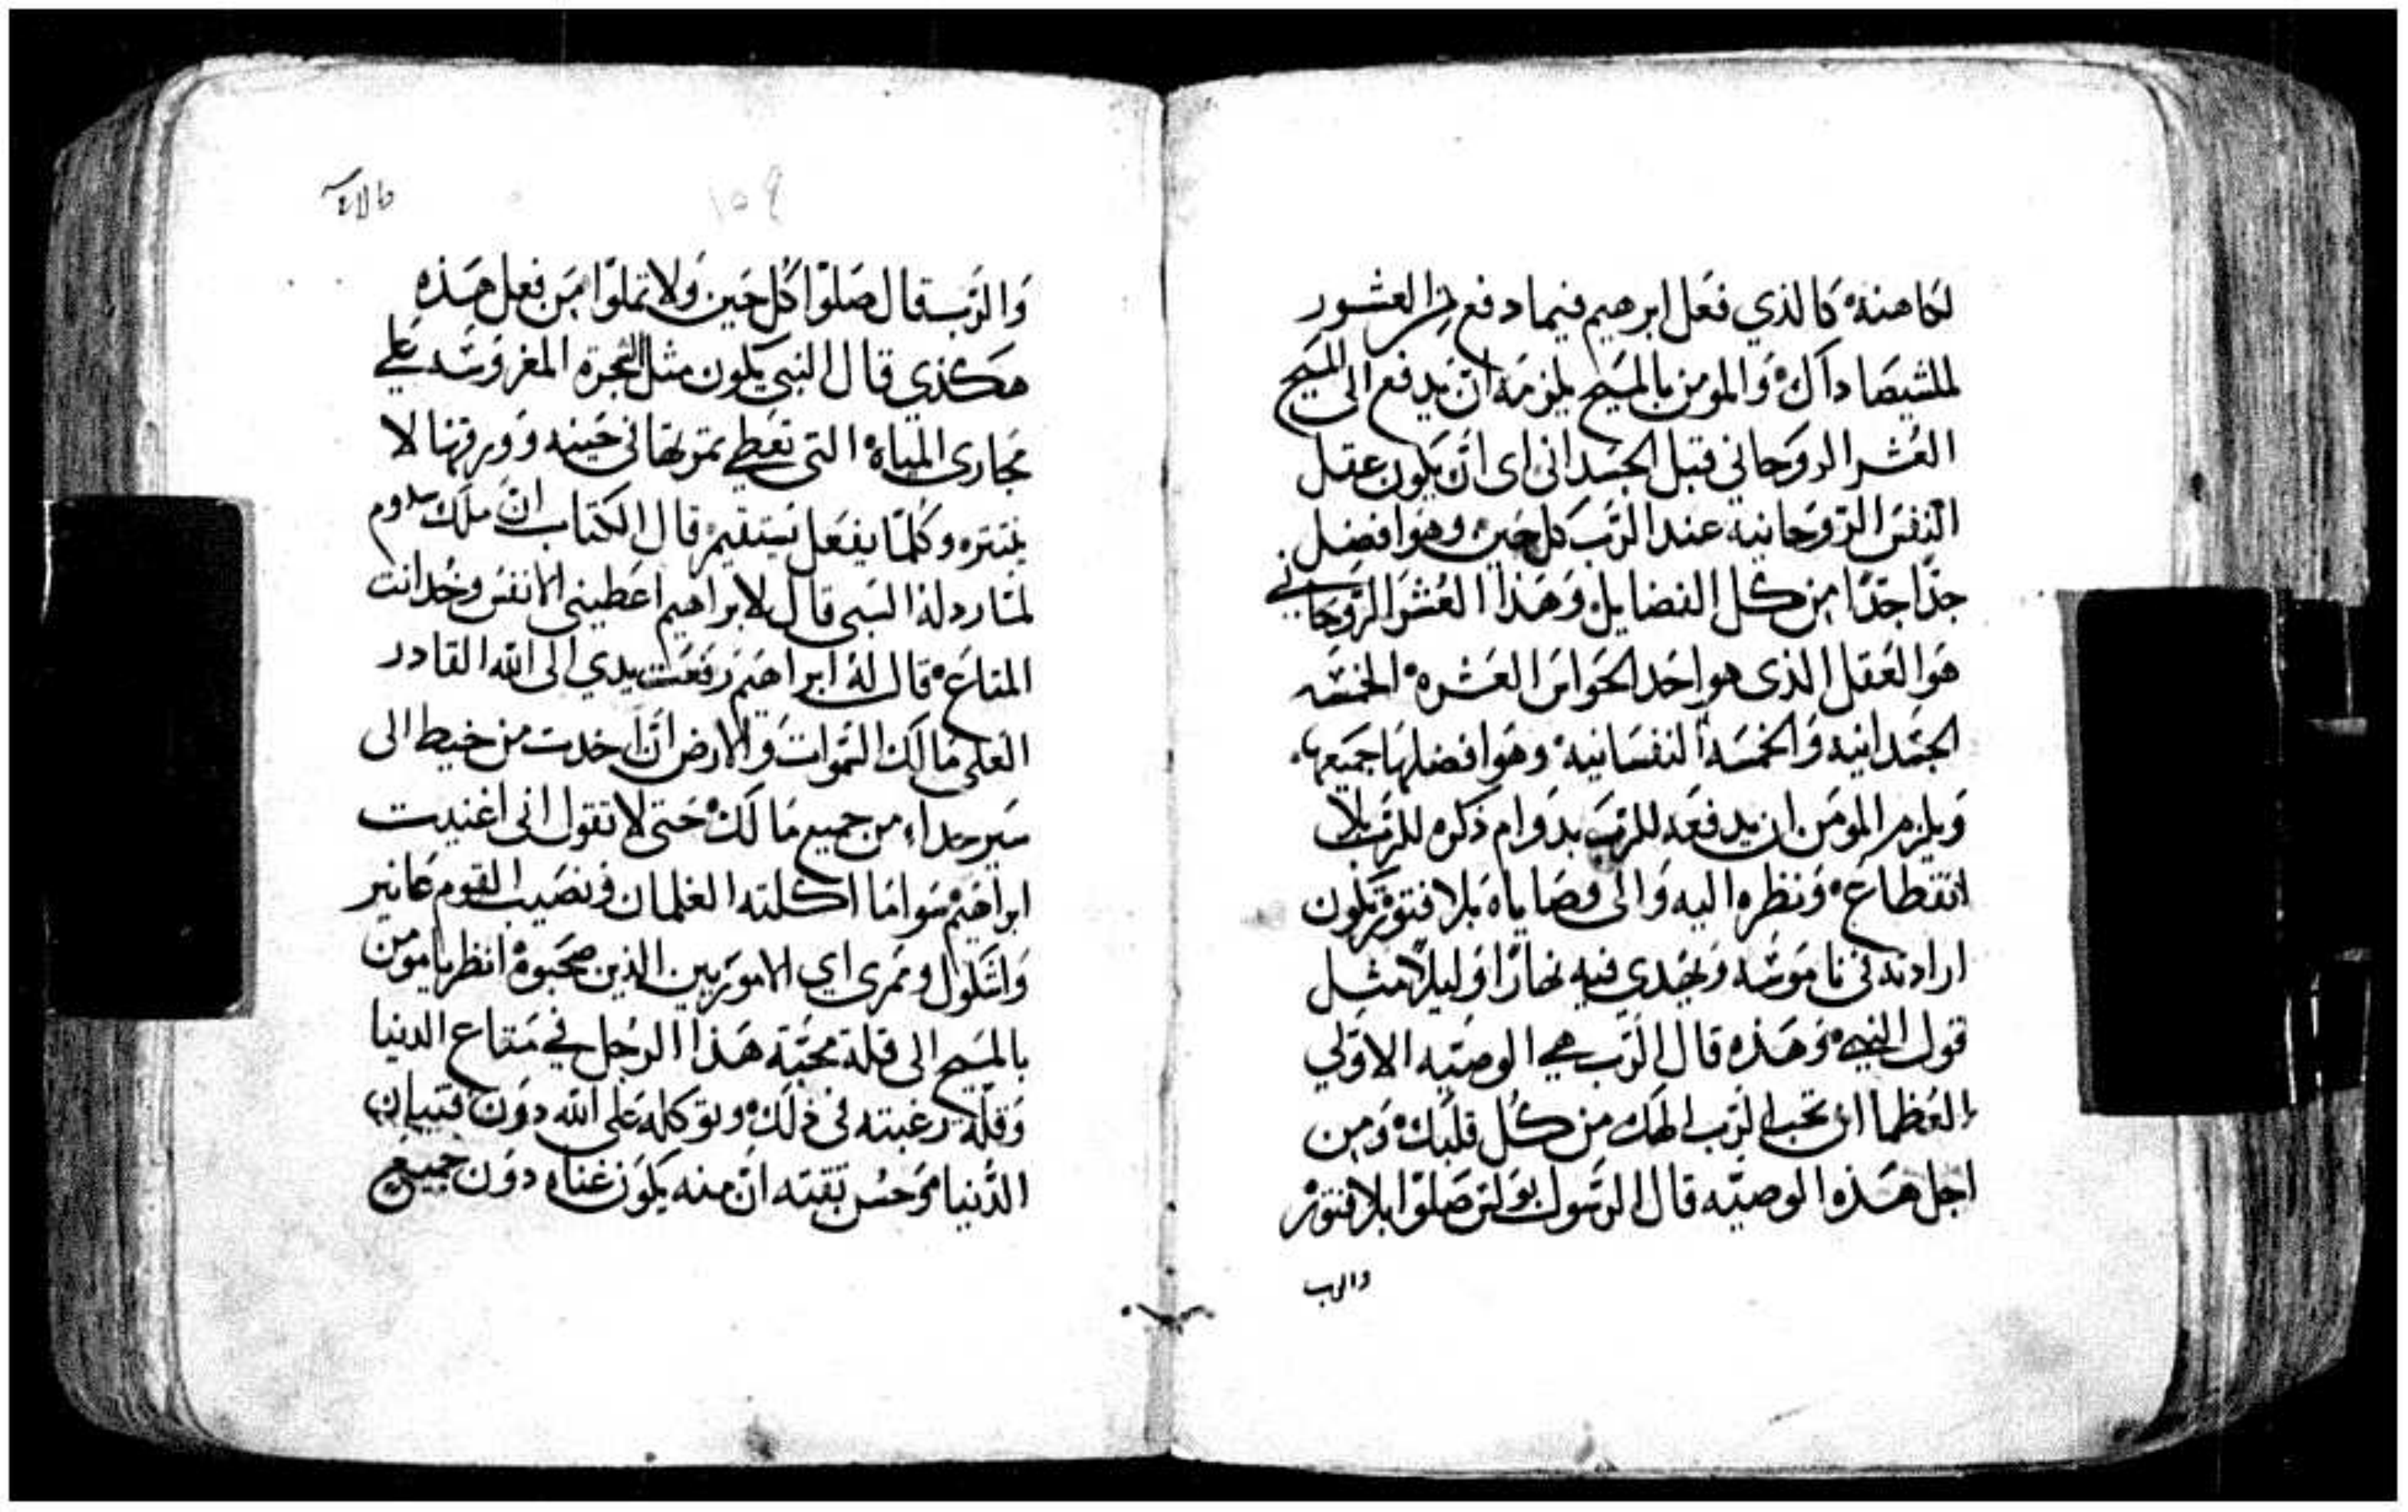 لكاهنه كالذي فعل ابرهيم فيما دفع من العشور
لملشيصاداك والمومن بالمسيح يلزمه ان يدفع الى المسيح
العشر الروحاني قبل الجسداني اى ان يكون عقل
النفس الروحانية عند الرب كل حين وهو افضل
جدًا جدًا من كل الفضايل وهذا العشر الروحاني
هو العقل الذى هو احد الحواس العشره الخمسه
الجسدانيه والخمسه النفسانيه وهو افضلها جميعها
ويلزم المومن ان يدفعه للرب بدوام ذكره للرب بلا
انقطاع ونظره اليه والى وصاياه بلا فتور يكون
ارادته في ناموسه ويهدي فيه نهارًا وليلًا مثل
قول النبي وهذه قال الرب هي الوصيه الاولي
العظما ان تحب الرب الهك من كل قلبك ومن
اجل هذه الوصيّه قال الرسول بولس صلوا بلا فتور
والرب
١٥٩
والرب قال صلوا كل حين ولا تملوا من فعل هذه
هكذي قال النبي يكون مثل الشجرة المغروسه علي
مجارى المياه التى تعطي ثمرتها في حينه وورقها لا
ينتثر وكلما يفعل يستقيم قال الكتاب ان ملك سدوم
لما رد له السبي قال لابراهيم اعطيني الانفس وخد انت
المتاع قال له ابراهيم رفعت يدي الى الله القادر
العلي مالك السموات والارض ان اخدت من خيط الى
سير حداء من جميع مالك حتى لا تقول انى اغنيت
ابراهيم سوا ما اكلته الغلمان ونصيب القوم عانير
واشكول وممرى اي الاموريين الذين صحبوه انظر يا مومن
بالمسيح الى قلة محبّة هذا الرجل في متاع الدنيا
وقلة رغبته في ذلك وتوكله على الله دون قنيان
الدنيا وحسن ثقته ان منه يكون غناه دون جميع